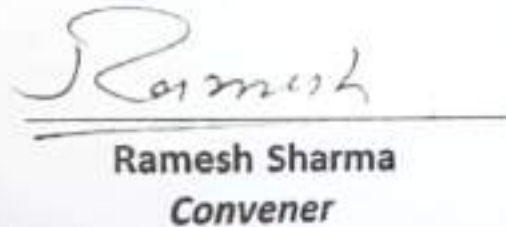 Ramesh
Ramesh Sharma
Convener